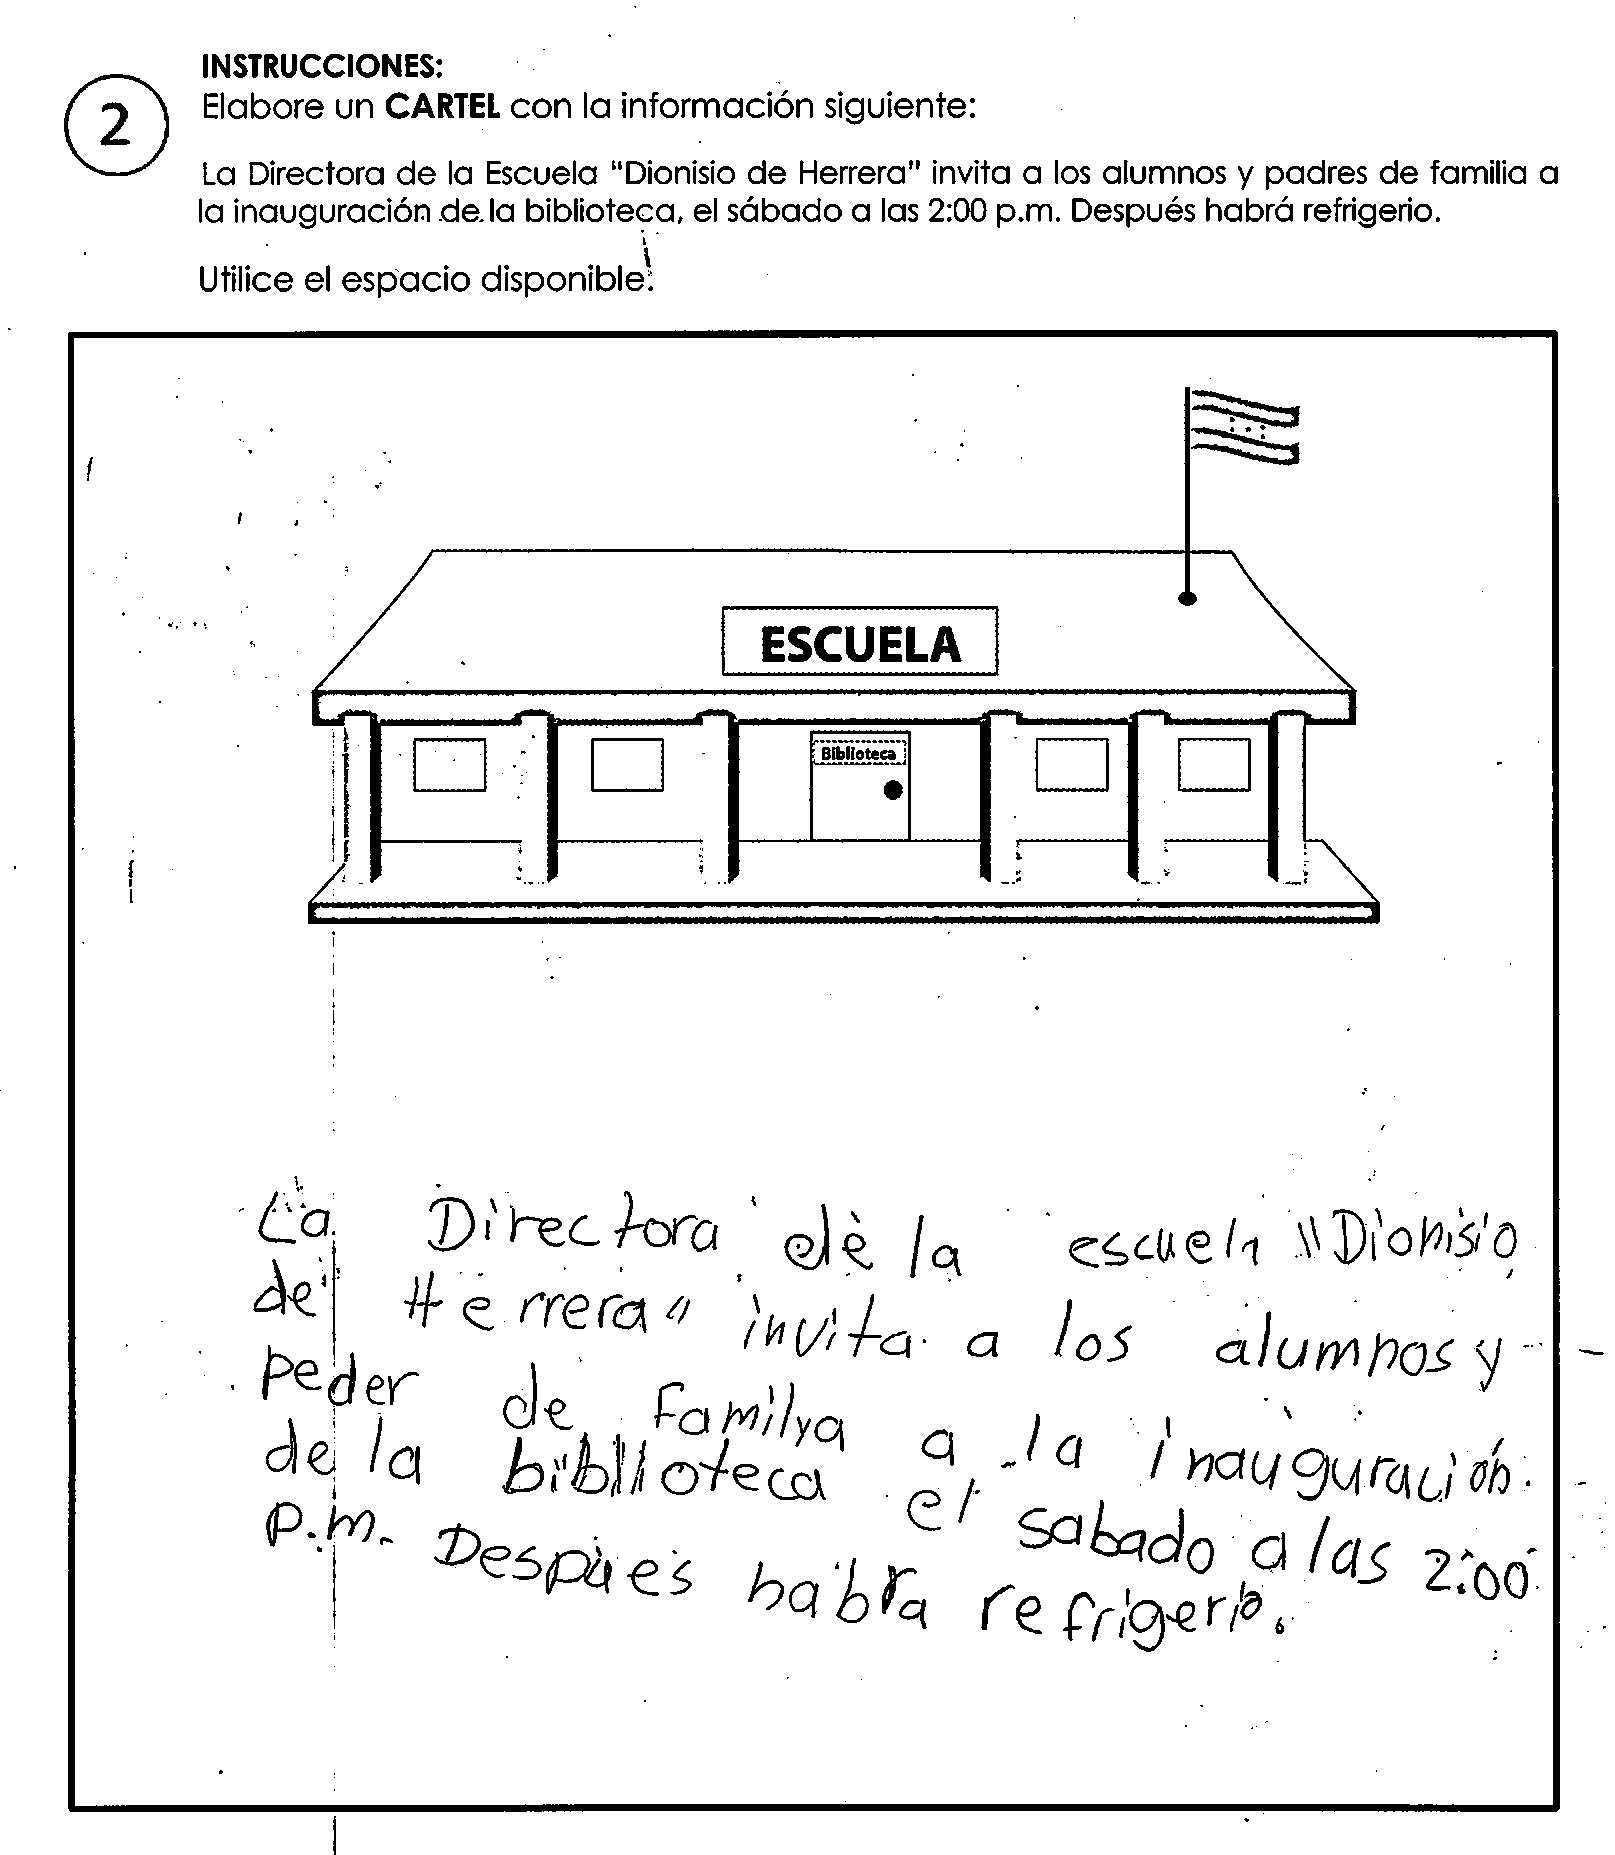 INSTRUCCIONES:
2
Elabore un CARTEL con la información siguiente:
La Directora de la Escuela "Dionisio de Herrera" invita a los alumnos y padres de familia a
la inauguración de la biblioteca, el sábado a las 2:00 p.m. Después habrá refrigerio.
Utilice el espacio disponible.
ESCUELA
Biblioteca
La Directora de la escuela "Dionisio
de Herrera" invita a los alumnos y
peder de familya a la inauguración
de la biblioteca el sabado a las 2:00
p.m. Despues habra refrigerio.